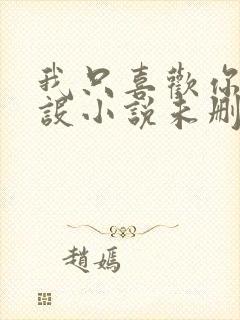 我只喜歡你
設小說未刪
趙嫣